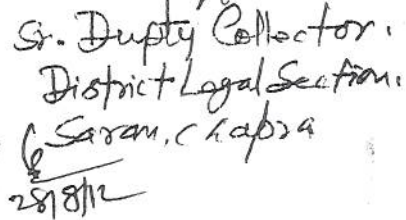 Sr. Dupty Collector.
District Legal Section.
Saran, Chapra
28/8/12